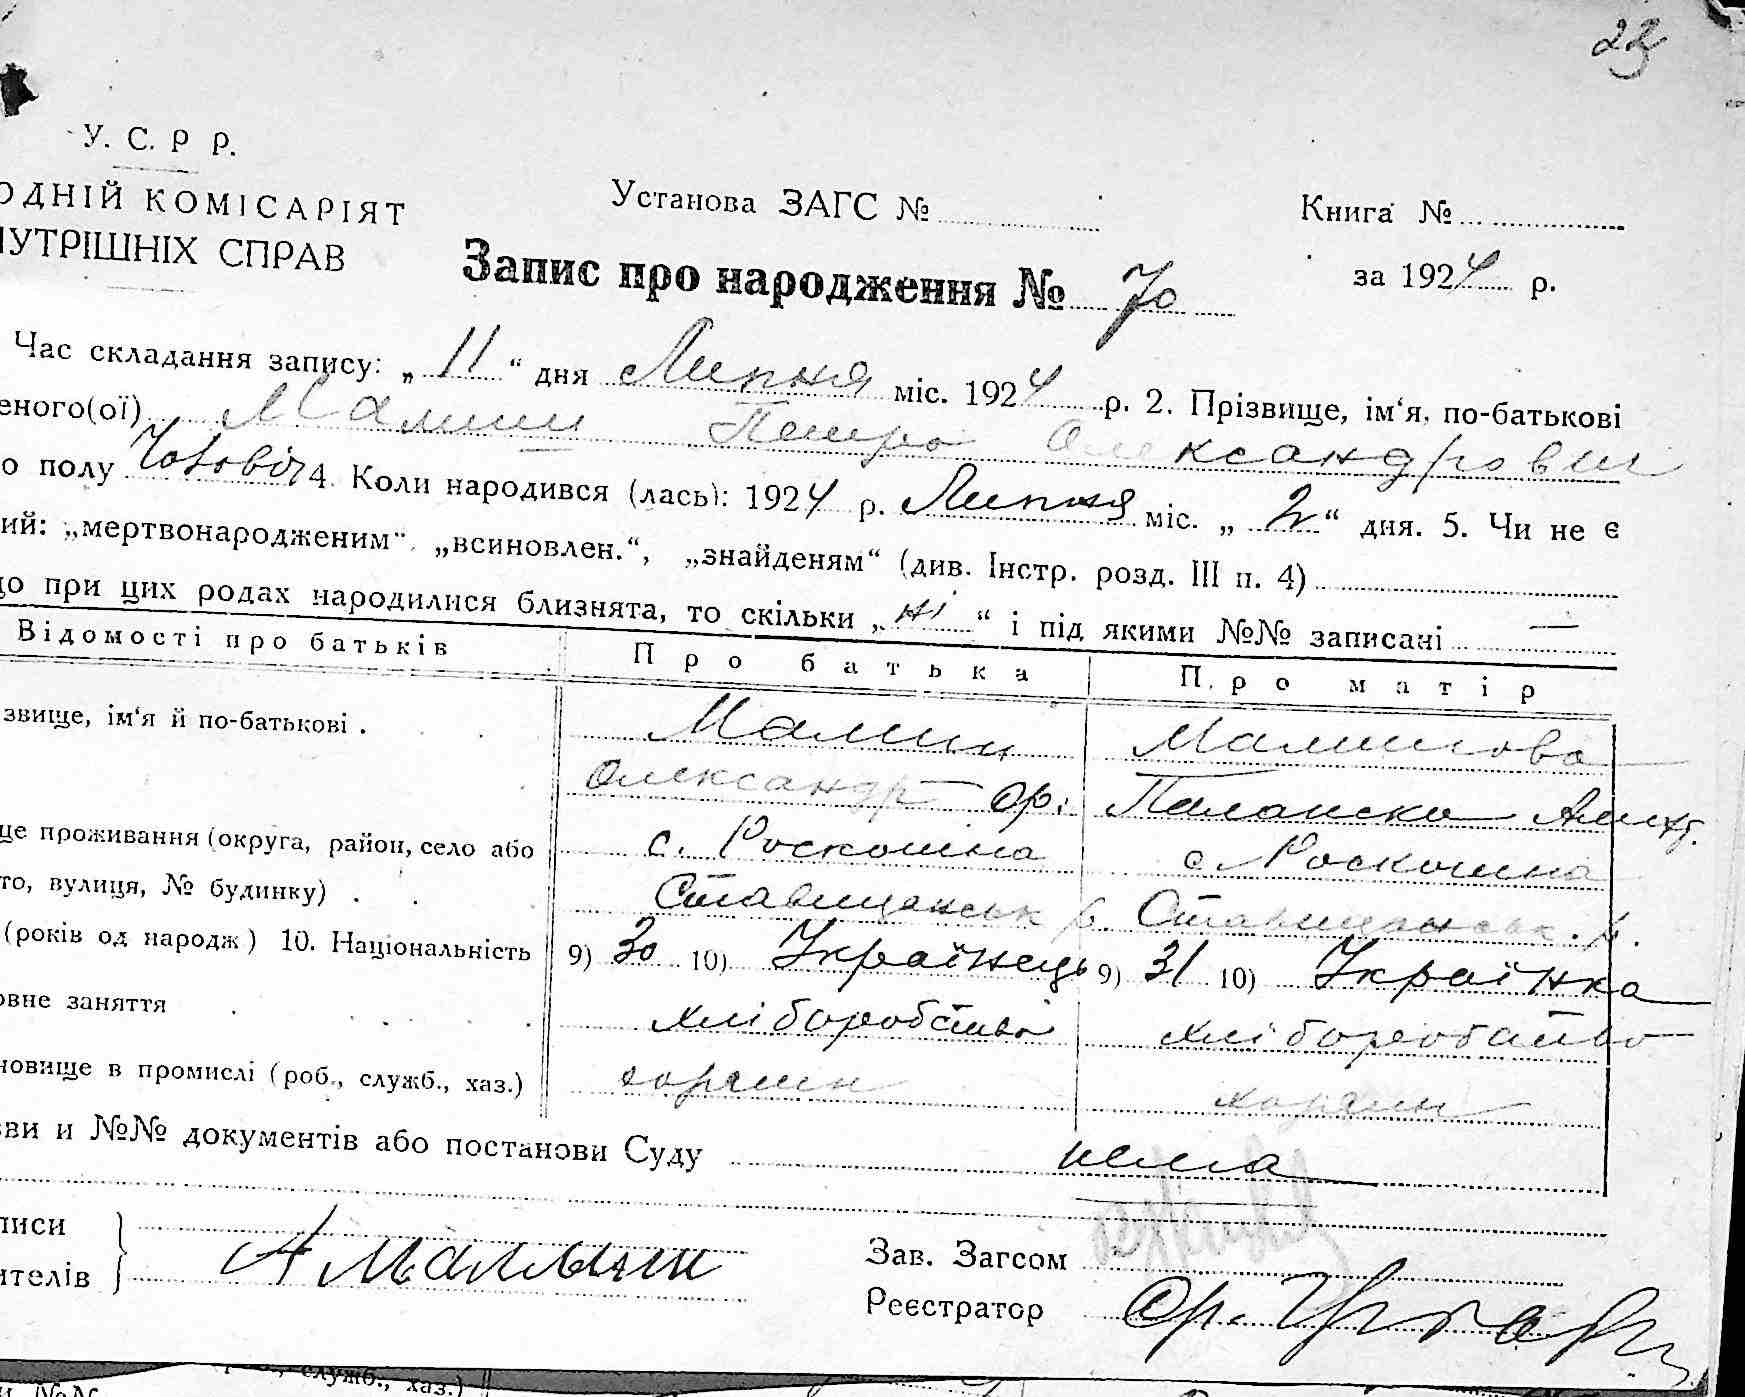 22
У. С. Р Р.
ОДНІЙ КОМІСАРІЯТ
НУТРІШНІХ СПРАВ
Установа ЗАГС №
Книга №
Запис про народження № 70
за 1924 р.
Час складання запису: „ 11 “ дня Липня міс. 1924 р. 2. Прізвище, ім‘я, по-батькові
еного(ої) Малиш Петро Олександрович
о полу Чоловіч 4. Коли народився (лась): 1924 р. Липня міс. „ 2 “ дня. 5. Чи не є
ий: „мертвонародженим“, „всиновлен.“, „знайденям“ (див. Інстр. розд. III п. 4)
що при цих родах народилися близнята, то скільки „ ні “ і під якими №№ записані —
Відомості про батьків Про батька Про матір
звище, ім‘я й по-батькові . Малиш
Олександр
це проживання (округа, район, село або с. Роскошна с. Роскошна
то, вулиця, № будинку) . Ставищанськ р. Ставищанськ. р.
(років од народж) 10. Національність 9) 30 10) Українець 9) 31 10) Українка
овне заняття хліборобство хліборобство
новище в промислі (роб., служб., хаз.)
зви и №№ документів або постанови Суду нема
писи
ителів } А Малыш
Зав. Загсом
Реєстратор
служб., хаз.)